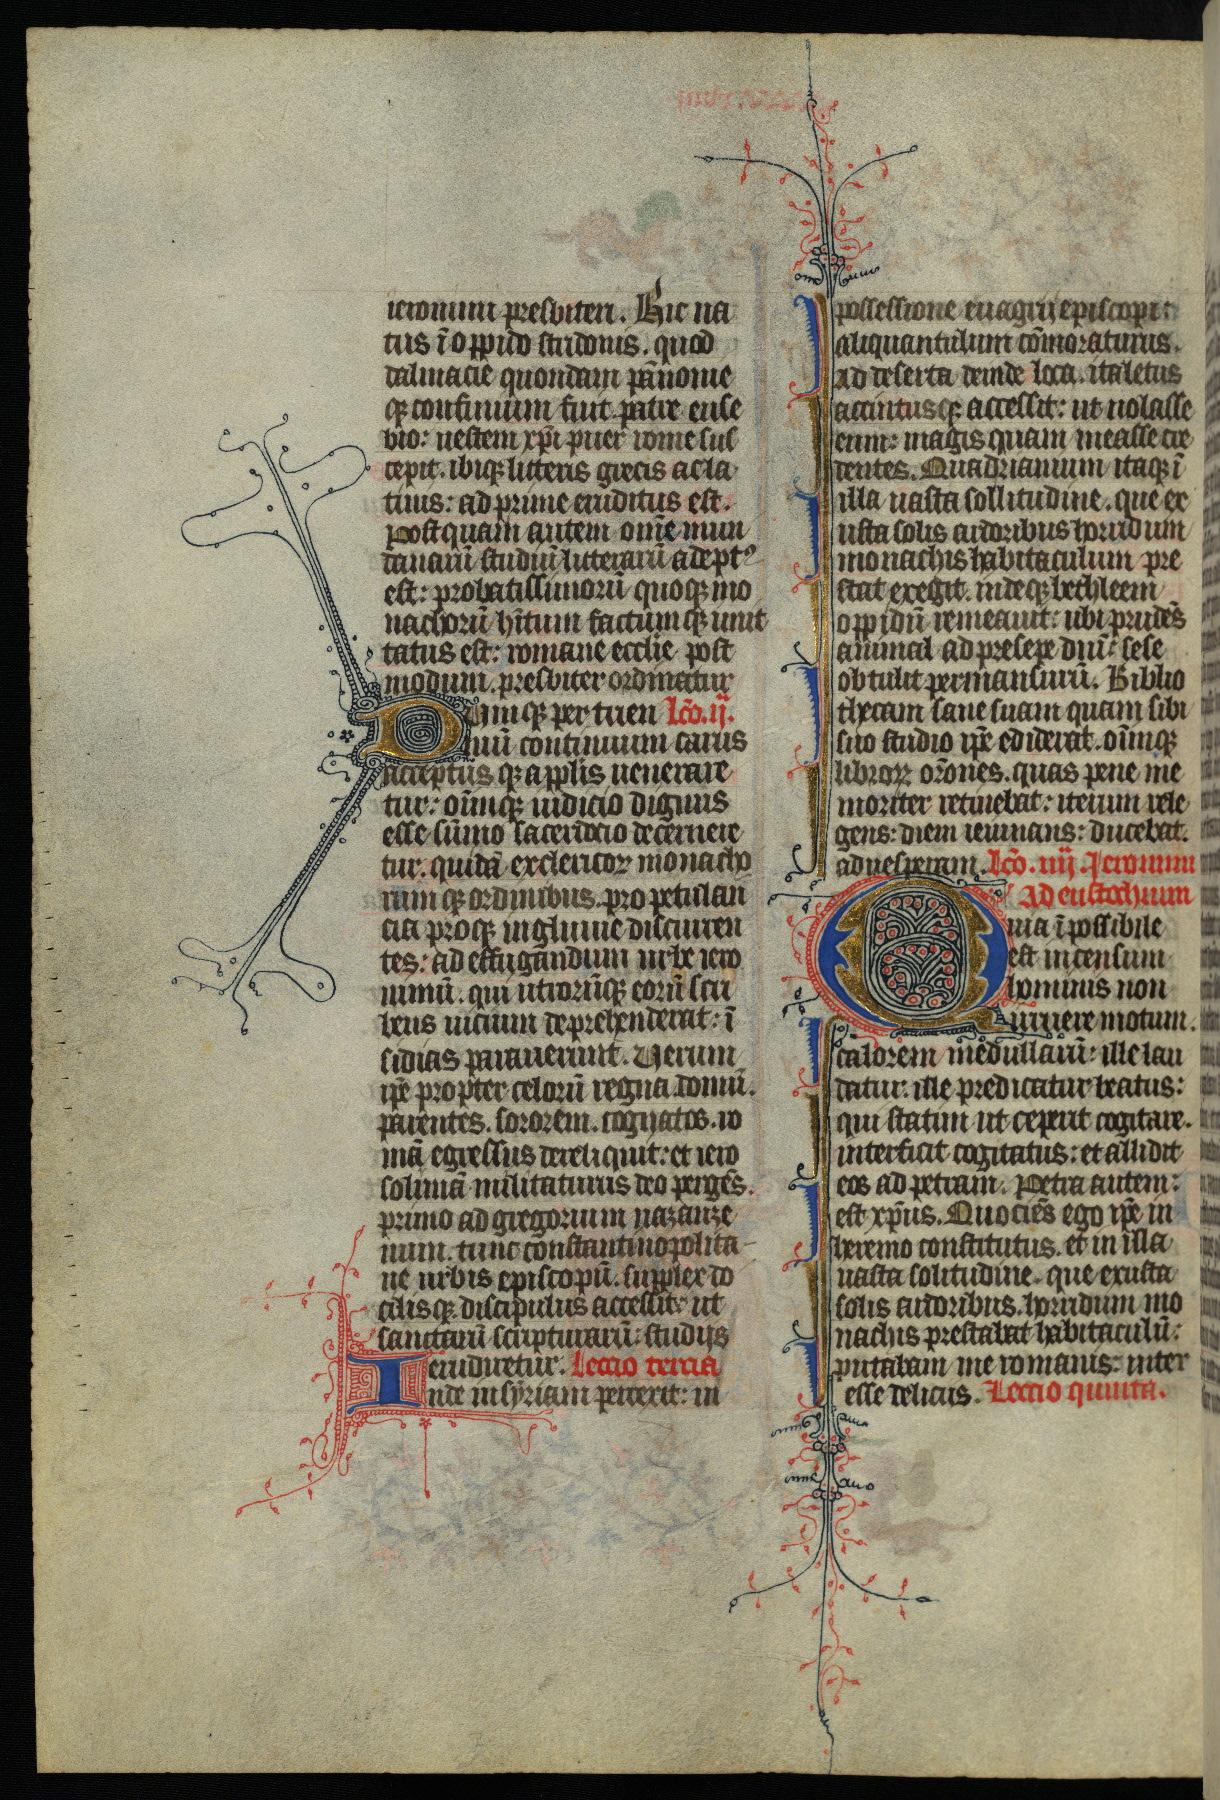 ieronimi presbiteri. Hic na
tus ī oppido stridonis. quod
dalmacie quondam pānonie
qꝫ confinium fuit. patre euse
bio: uestem xp̄i puer rome sus
cepit. ibiqꝫ litteris grecis ac la
tinis: ad prime eruditus est.
Postquam autem om̄e mun
danarū studiū litterarū adeptꝰ
est: probatissimorū quoqꝫ mo
nachorū hītum factum qꝫ imit
tatus est: romane ecclīe post
modum. presbiter ordinatur
Cumqꝫ per trien lc̄o. ij.
niū continuum carus
acceptus qꝫ applis uenerare
tur: oīmqꝫ iudicio dignus
esse sūmo sacerdocio decernere
tur. quidā ex clericoꝝ monacho
rum qꝫ ordinibus. pro petulan
cia proqꝫ ingluuie discurren
tes: ad effugandum urbe iero
nimū. qui utrorūqꝫ eorū scri
bens uicium deprehenderat: ī
sidias parauerunt. Verum
ip̄e propter celorū regna domū.
parentes. sororem. cognatos. ro
mā egressus dereliquit: et iero
solimā militaturus deo pergēs.
primo ad gregorium nazanze
num. tunc constantinopolita
ne urbis episcopū. supplex do
cilisqꝫ discipulus accessit: ut
sanctarū scripturarū: studijs
erudiretur. Lectio tercia
Inde in syriam perrexit: in
possessione euagrij episcopi:
aliquantulum cōmoraturus.
Ad deserta deinde loca. ita letus
accintusqꝫ accessit: ut uolasse
eum: magis quam measse cre
dentes. Quadrianium itaqꝫ ī
illa uasta sollitudine. que ex
usta solis ardoribus horridum
monachis habitaculum pre
stat exegit. indeqꝫ bethleem
oppidū remeauit: ubi prudēs
animal ad presepe dn̄i: sese
obtulit permansurū. Biblio
thecam sane suam quam sibi
suo studio ip̄e ediderat. oīmqꝫ
libroꝝ orōnes. quas pene me
moriter retinebat: iterum rele
gens: diem ieiunans: ducebat.
ad uesperam. lc̄o. iiij. Jeronimi
Ad eustochium
Quia īpossibile
est in censum
hominis non
irruere motum.
calorem medullarū: ille lau
datur. ille predicatur beatus:
qui statim ut ceperit cogitare.
interficit cogitatus: et allidit
eos ad petram. Petra autem:
est xp̄us. Quociēs ego ip̄e in
heremo constitutus. et in illa
uasta solitudine. que exusta
solis ardoribus. horridum mo
nachis prestabat habitaculū:
putabam me romanis: inter
esse delicijs. Lectio quinta.